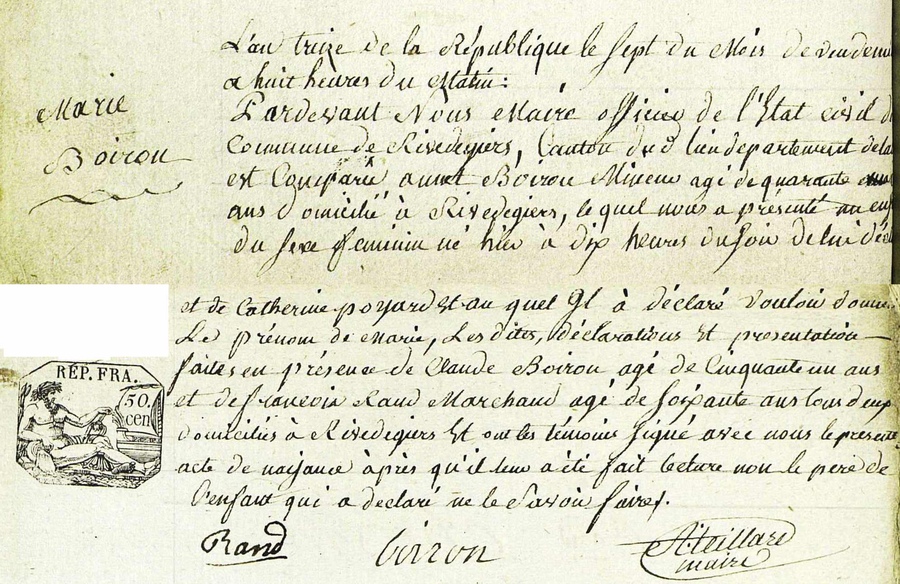 L'an treize de la République le sept du Mois de vendem
a huit heures du Matin:
Pardevant Nous Maire officier de l'Etat civil d
Commune de Rivedegiers, Canton dud lieu departement dela
est Comparû annet Boiron Mineur agé de quarante
ans domicilié à Rivedegiers, lequel nous a présenté un enf
du sexe feminin né hier à dix heures du soir de lui décl
Marie
Boiron
et de Catherine poyard Et au quel Il à déclaré Vouloir donner
Le prénom de Marie, Les dites déclarations Et presentation
faites en présence de Claude Boiron agé de Cinquante un ans
et de francois Rand Marchand agé de soixante ans tous deux
domiciliés à Rivedegiers Et ont les témoins signé avec nous le présent
acte de naissance après qu'il leur a été fait lecture non le pere de
l'enfant qui a declaré ne le Savoir faire.
RÉP. FRA.
50
cen
Rand boiron
maire